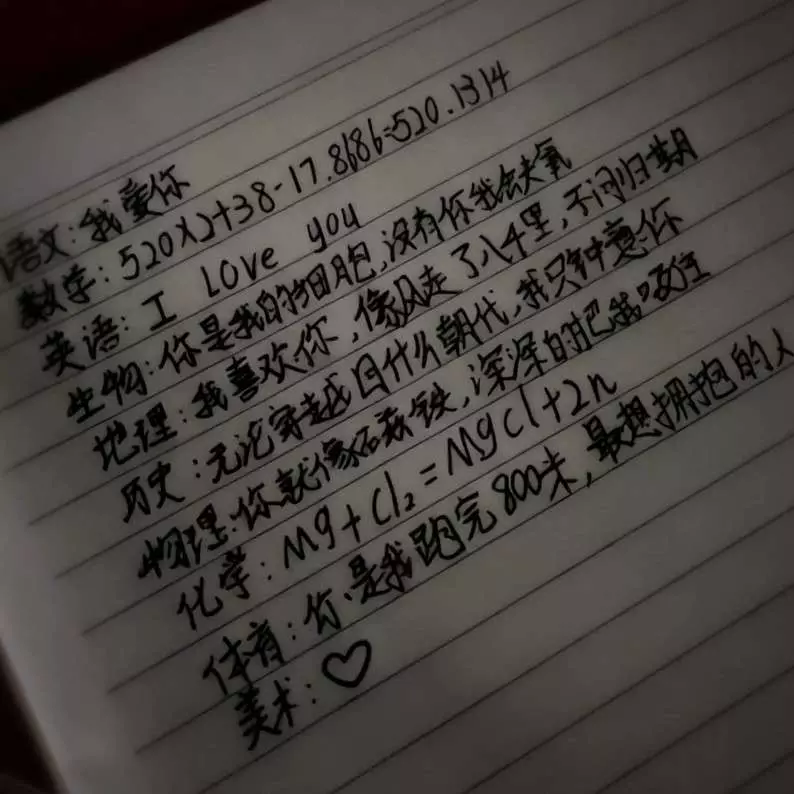 语文:我爱你
数学:520×2+38-17.8686=520.1314
英语:I Love you
生物:你是我的细胞,没有你我会失氧
地理:我喜欢你,像风走了八千里,不问归期
历史:无论穿越回什么朝代,我只钟意你
物理:你就像磁铁,深深的把我吸住
化学:Mg+Cl₂=MgCl+2n
体育:你是我跑完800米,最想拥抱的人
美术:♡